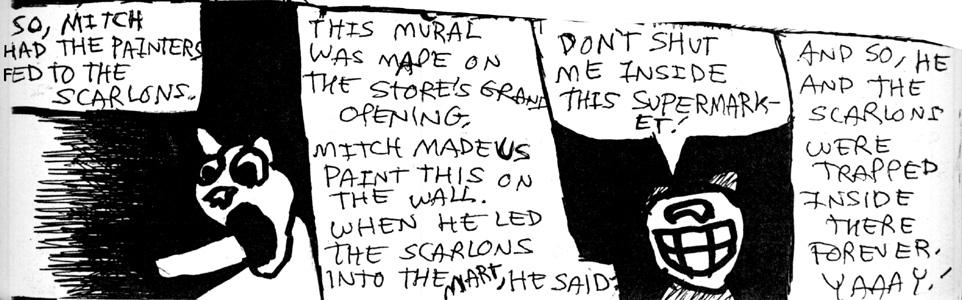 SO, MITCH
HAD THE PAINTERS
FED TO THE
SCARLONS.
THIS MURAL
WAS MADE ON
THE STORE'S GRAND
OPENING.
MITCH MADE US
PAINT THIS ON
THE WALL.
WHEN HE LED
THE SCARLONS
INTO THE MART, HE SAID:
DON'T SHUT
ME INSIDE
THIS SUPERMARK-
ET!
AND SO, HE
AND THE
SCARLONS
WERE
TRAPPED
INSIDE
THERE
FOREVER.
YAAAY!